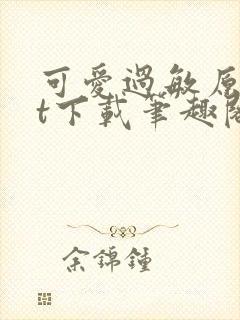 可愛過敏原
t下載筆趣閣
余錦鐘